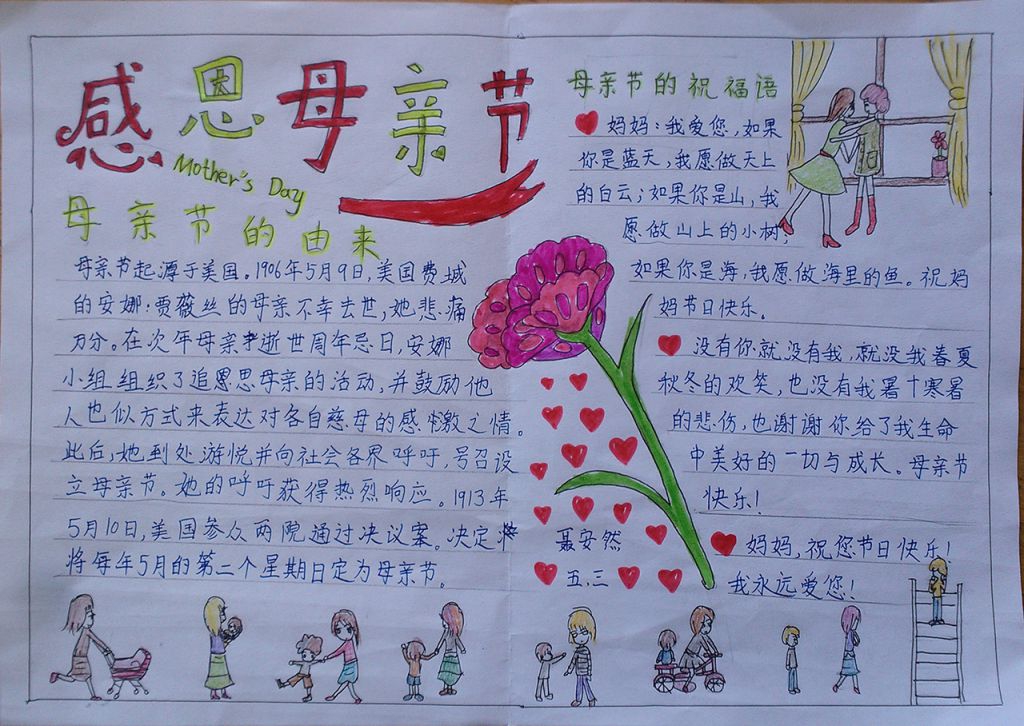 感恩母亲节
Mother's Day
母亲节的由来
母亲节起源于美国。1906年5月9日,美国费城
的安娜·贾薇丝的母亲不幸去世,她悲痛
万分。在次年母亲逝世周年忌日,安娜
小组组织了追思母亲的活动,并鼓励他
人也似方式来表达对各自慈母的感激之情。
此后,她到处游悦并向社会各界呼吁,号召设
立母亲节。她的呼吁获得热烈响应。1913年
5月10日,美国参众两院通过决议案。决定
将每年5月的第二个星期日定为母亲节。
母亲节的祝福语
妈妈:我爱您,如果
你是蓝天,我愿做天上
的白云;如果你是山,我
愿做山上的小树;
如果你是海,我愿做海里的鱼。祝妈
妈节日快乐。
没有你就没有我,就没我春夏
秋冬的欢笑,也没有我署十寒暑
的悲伤,也谢谢你给了我生命
中美好的一切与成长。母亲节
快乐!
妈妈,祝您节日快乐!
我永远爱您!
聂安然
五.三